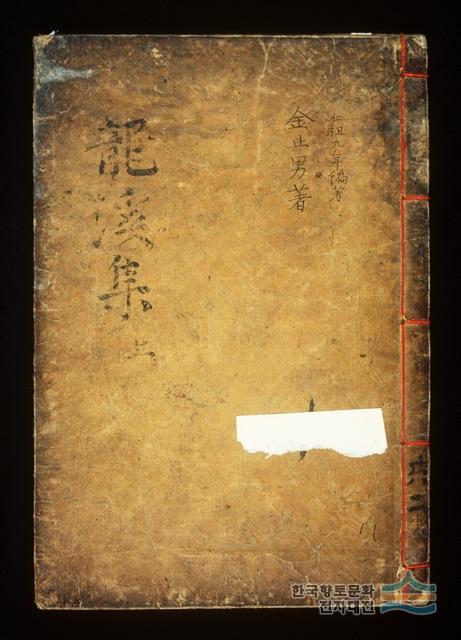 仁祖九年編著
金止男著
龍溪集 上
共二
한국향토문화
전자대전